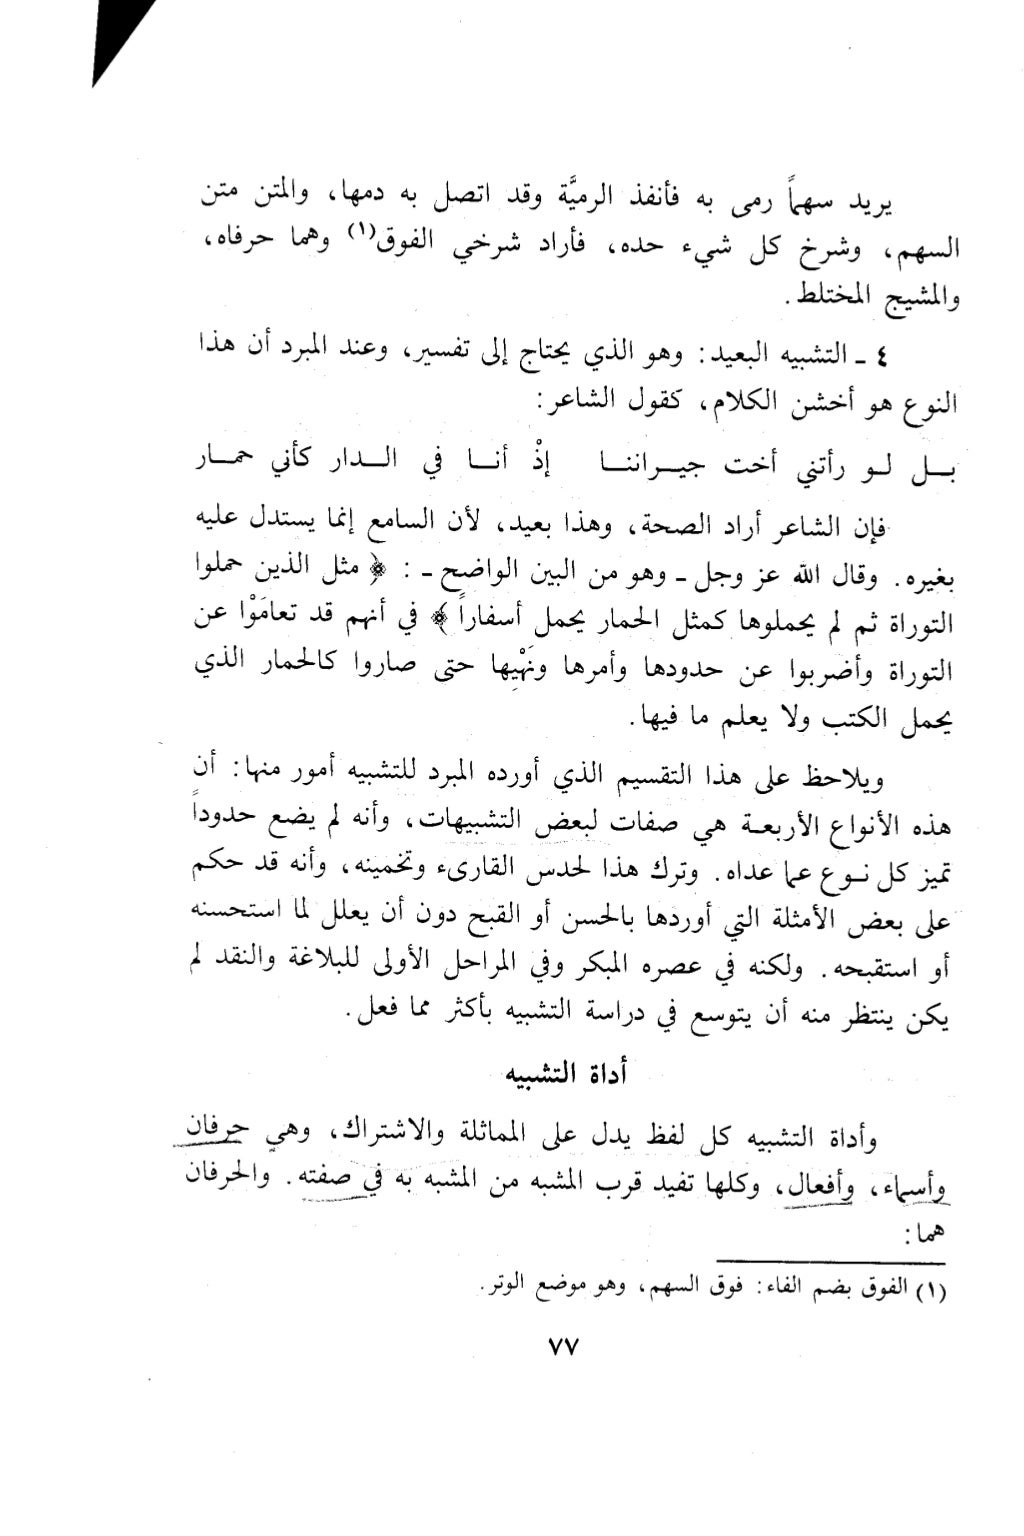 يريد سهماً رمى به فأنفذ الرميَّة وقد اتصل به دمها، والمتن متن
السهم، وشرخ كل شيء حده، فأراد شرخي الفوق(١) وهما حرفاه،
والمشيج المختلط.
٤ ـ التشبيه البعيد: وهو الذي يحتاج إلى تفسير، وعند المبرد أن هذا
النوع هو أخشن الكلام، كقول الشاعر:
بـل لـو رأتني أخت جيـراننـا إذْ أنـا في الـدار كأني حمـار
فإن الشاعر أراد الصحة، وهذا بعيد، لأن السامع إنما يستدل عليه
بغيره. وقال الله عز وجل ـ وهو من البين الواضح ـ : ﴿ مثل الذين حملوا
التوراة ثم لم يحملوها كمثل الحمار يحمل أسفاراً ﴾ في أنهم قد تعامَوْا عن
التوراة وأضربوا عن حدودها وأمرها ونَهْيِها حتى صاروا كالحمار الذي
يحمل الكتب ولا يعلم ما فيها.
ويلاحظ على هذا التقسيم الذي أورده المبرد للتشبيه أمور منها: أن
هذه الأنواع الأربعـة هي صفات لبعض التشبيهات، وأنه لم يضع حدوداً
تميز كل نـوع عما عداه. وترك هذا لحدس القارىء وتخمينه، وأنه قد حكم
على بعض الأمثلة التي أوردها بالحسن أو القبح دون أن يعلل لما استحسنه
أو استقبحه. ولكنه في عصره المبكر وفي المراحل الأولى للبلاغة والنقد لم
يكن ينتظر منه أن يتوسع في دراسة التشبيه بأكثر مما فعل.
أداة التشبيه
وأداة التشبيه كل لفظ يدل على المماثلة والاشتراك، وهي حرفان
وأسماء، وأفعال، وكلها تفيد قرب المشبه من المشبه به في صفته. والحرفان
هما:
(١) الفوق بضم الفاء: فوق السهم، وهو موضع الوتر.
٧٧